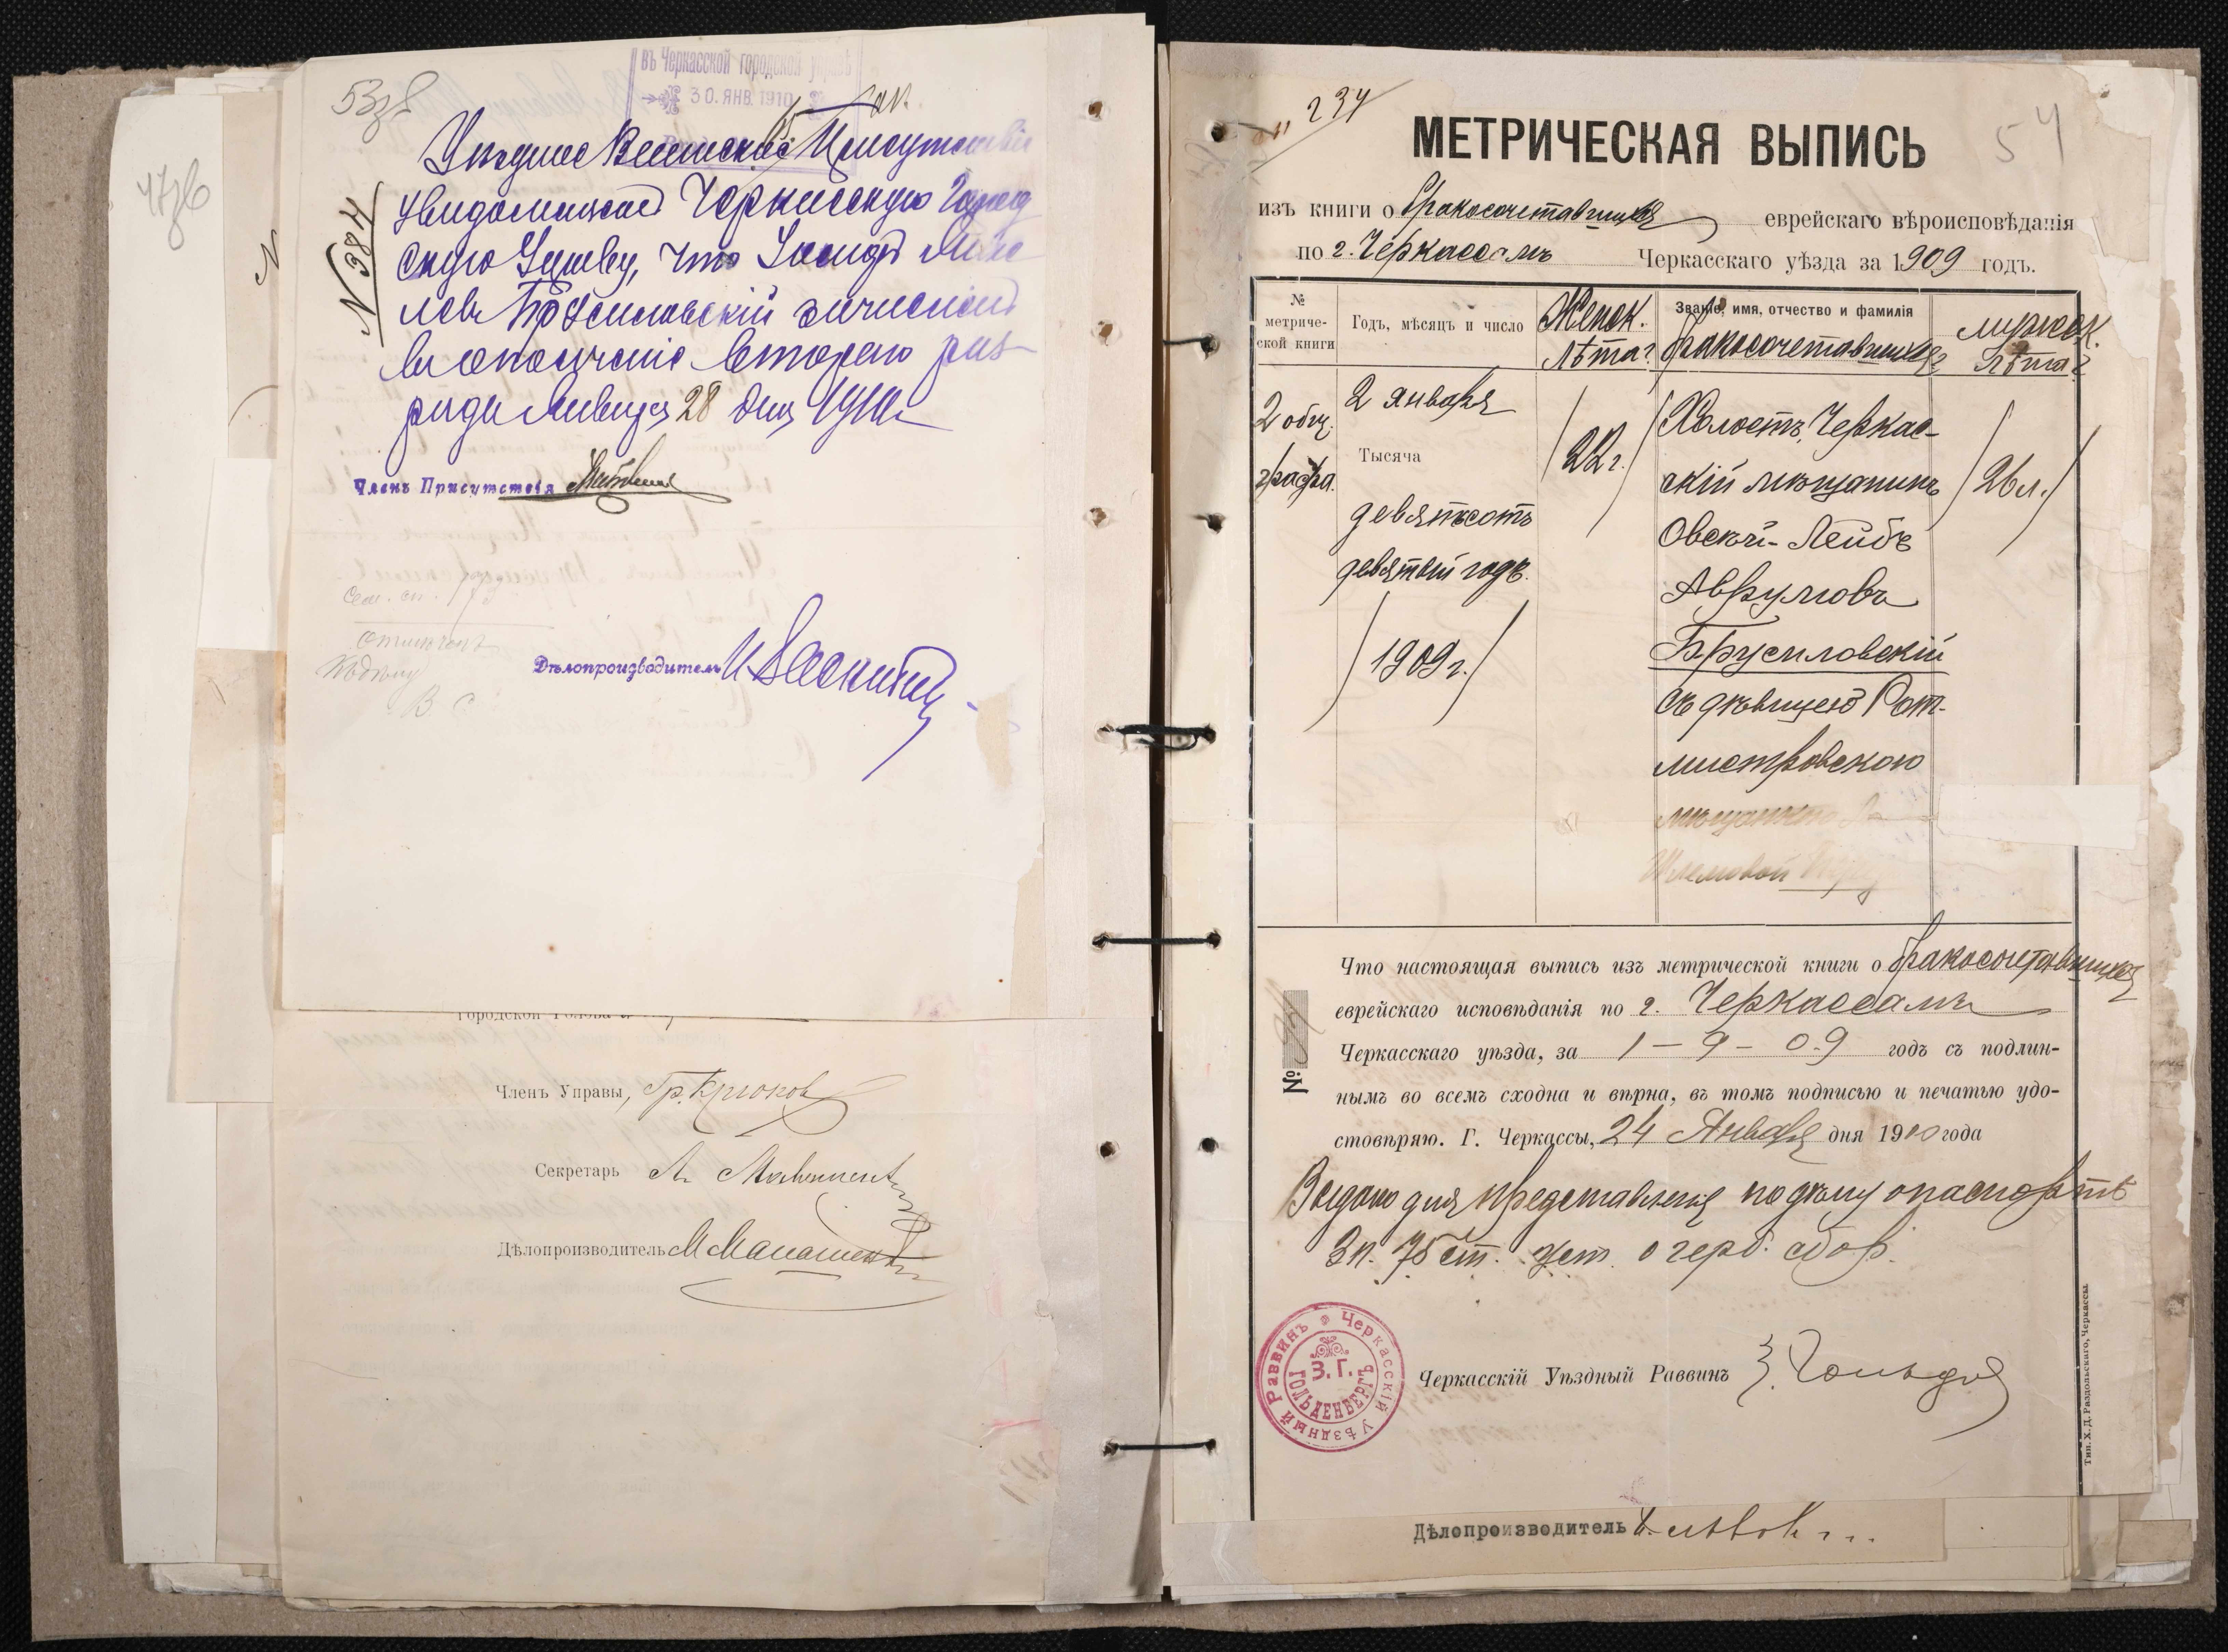 53об
въ Черкасской городской управѣ
30. ЯНВ. 1910
Уѣздное Воинское Присутствіе
увѣдомляетъ Черкасскую Город
скую Управу, что
Брусиловскій зачисленъ
въ ополченіе второго раз-
ряда Января 28 дня 1910 г.
№ 384
Членъ Присутствія
Дѣлопроизводитель
47об
Членъ Управы, Гр. Крюковъ
Секретарь
Дѣлопроизводитель
234
54
МЕТРИЧЕСКАЯ ВЫПИСЬ
изъ книги о бракосочетавшихся еврейскаго вѣроисповѣданія
по г. Черкассамъ Черкасскаго уѣзда за 1909 годъ.
№ метриче-ской книги
Годъ, мѣсяцъ и число
Женск. лѣта
Званіе, имя, отчество и фамилія бракосочетавшихся
мужск. лѣта
2 общ. графа.
2 января
Тысяча
девятьсотъ
девятый годъ.
/1909 г./
/22 г./
Холостъ, Черкас-
скій мѣщанинъ
Овсѣй-Лейбъ
Аврумовъ
Брусиловскій
съ дѣвицею Рот-
мистровскою
мѣщанкою
Шлемовой
/26 л./
Что настоящая выпись изъ метрической книги о бракосочетавшихся
еврейскаго исповѣданія по г. Черкассамъ
Черкасскаго уѣзда, за 1-9-0-9 годъ съ подлин-
нымъ во всемъ сходна и вѣрна, въ томъ подписью и печатью удо-
стовѣряю. Г. Черкассы, 24 Января дня 1910 года
№
Выдано для представленія по дѣлу о паспортѣ
3 п. 75 ст. уст. о герб. сбор.
Черкасскій Уѣздный Раввинъ
З. Г. ГОЛЬДЕНБЕРГЪ
Черкасскій Уѣздный Раввинъ
Тип. Х. Д. Раздольскаго, Черкассы.
Дѣлопроизводитель